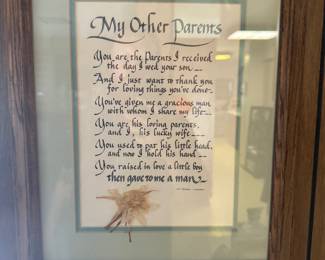 My Other Parents
You are the Parents I received
the day I wed your son --
And I just want to thank you
for loving things you've done-
You've given me a gracious man
with whom I share my life--
You are his loving parents,
and I, his lucky wife---
You used to pat his little head,
and now I hold his hand --
You raised in love a little boy
then gave to me a man-